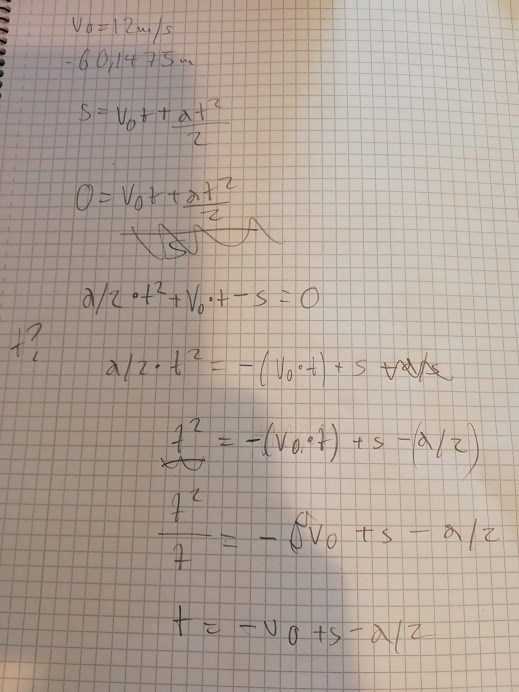 v₀ = 12m/s
-60,1475m
s = v₀t + at²/2
0 = v₀t + at²/2
s
a/2 · t² + v₀ · t - s = 0
t?
a/2 · t² = -(v₀ · t) + s
t² = -(v₀ · t) + s - (a/2)
t²/t = - v₀ + s - a/2
t = -v₀ + s - a/2